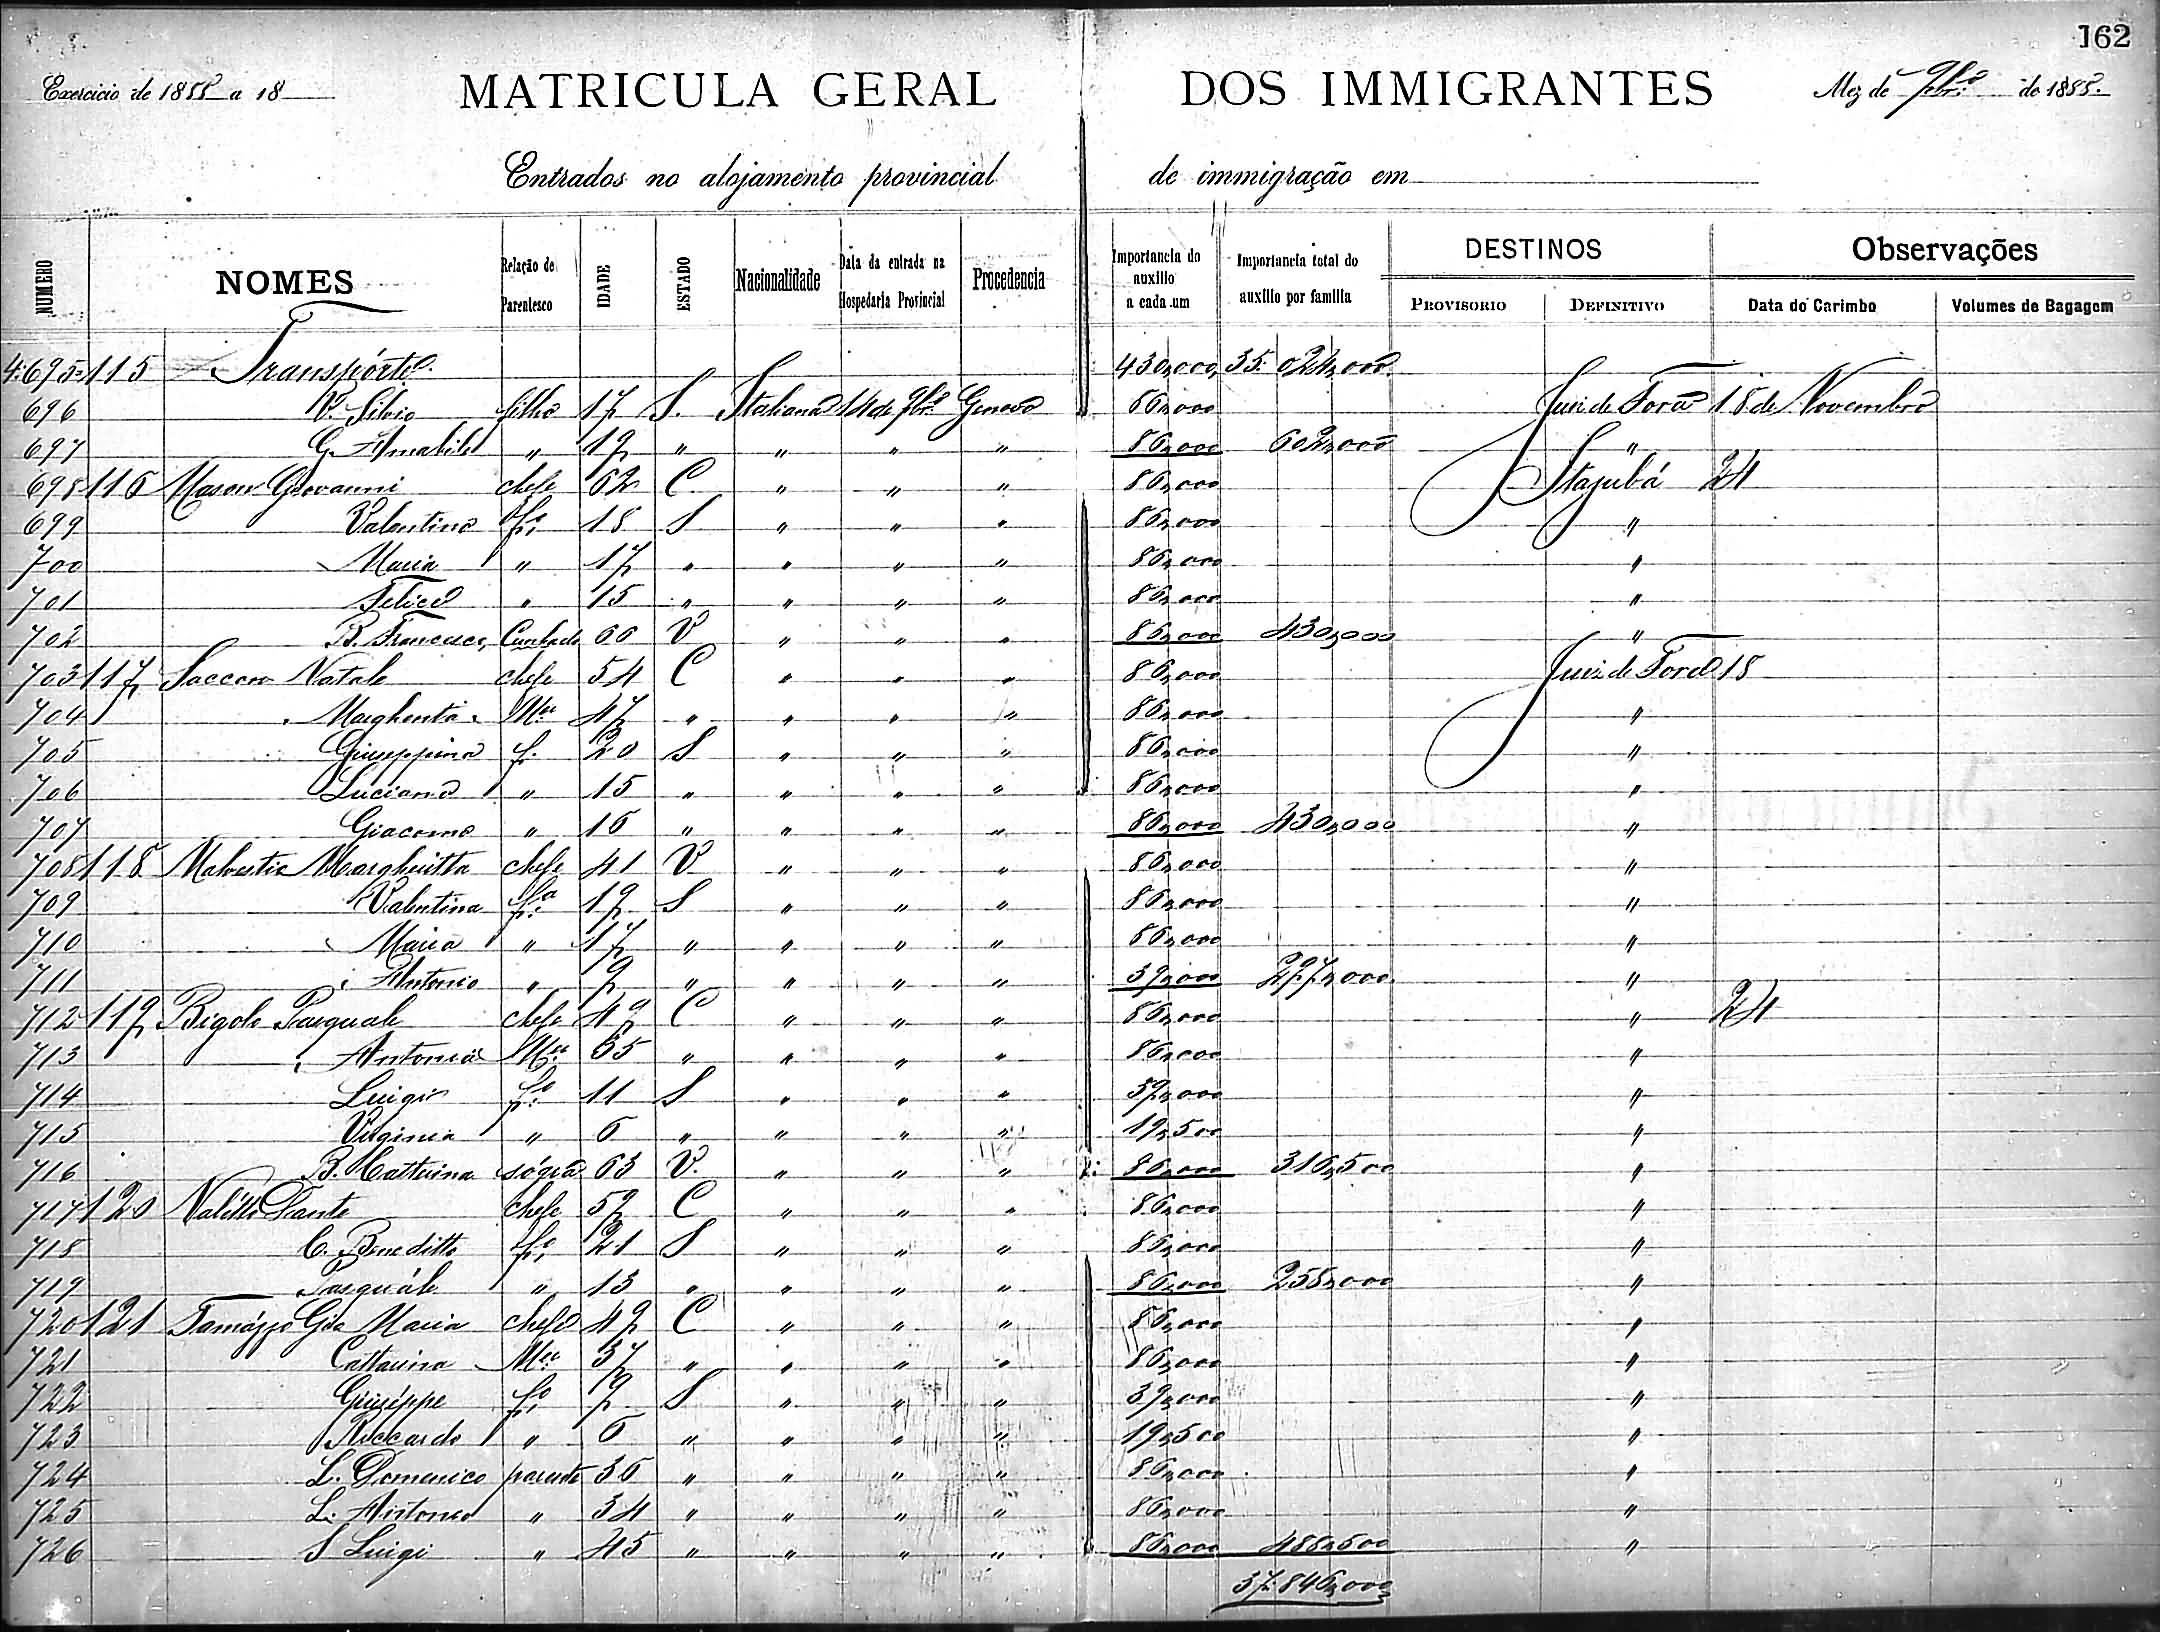 162
Exercicio de 1888 a 18
MATRICULA GERAL DOS IMMIGRANTES
Mez de 9br.o de 1888.
Entrados no alojamento provincial de immigração em
NUMERO
NOMES
Relação de Parentesco
IDADE
ESTADO
Nacionalidade
Data da entrada na Hospedaria Provincial
Procedencia
Importancia do auxilio a cada um
Importancia total do auxilio por familia
DESTINOS
PROVISORIO
DEFINITIVO
Observações
Data do Carimbo
Volumes de Bagagem
4:695 115 Transporte 430,000 35:024,000
696 V. Silvio filho 17 S. Italiana 14 de 9br.o Genova 86,000 Juiz de Fora 18 de Novembro
697 G. Amabile " 19 " " " " 86,000 602,000 "
698 116 Mason Giovanni chefe 62 C " " " 86,000 Itajubá 24
699 Valentino f.o 18 S " " " 86,000 "
700 Maria " 17 " " " " 86,000 "
701 Felice " 15 " " " " 86,000 "
702 B. Francesco, Cunhado 60 V " " " 86,000 430,000 "
703 117 Saccaro Natale chefe 54 C " " " 86,000 Juiz de Fora 18
704 Margherita Mer 47 " " " " 86,000 "
705 Giuseppina f. 20 S " " " 86,000 "
706 Luciano " 15 " " " " 86,000 "
707 Giacomo " 16 " " " " 86,000 430,000 "
708 118 Malvestio Margheritta chefe 41 V " " " 86,000 "
709 Valentina f.a 19 S " " " 86,000 "
710 Maria " 17 " " " " 86,000 "
711 Antonio " 9 " " " " 39,000 297,000 "
712 119 Bigolo Pasquale chefe 49 C " " " 86,000 " 24
713 Antonia Mer 35 " " " " 86,000 "
714 Luigi f.o 11 S " " " 39,000 "
715 Virginia " 6 " " " " 19,500 "
716 B. Cattarina sógra 63 V. " " " 86,000 316,500 "
717 120 Valitto Sante chefe 59 C " " " 86,000 "
718 C. Beneditto f.o 21 S " " " 86,000 "
719 Pasquále " 13 " " " " 86,000 258,000 "
720 121 Tamázzo Gio Maria chefe 49 C " " " 86,000 "
721 Cattarina Mer 37 " " " " 86,000 "
722 Giuséppe f.o 9 S " " " 39,000 "
723 Riccardo " 6 " " " " 19,500 "
724 L. Domenico parente 36 " " " " 86,000 "
725 L. Antonio " 34 " " " " 86,000 "
726 S Luigi " 45 " " " " 86,000 488,500 "
37:846,000